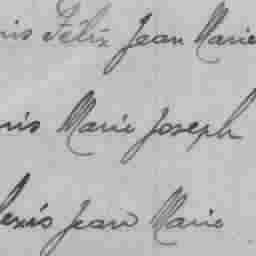 nis Félix Jean Marie
nis Marie Joseph
lexis Jean Marie